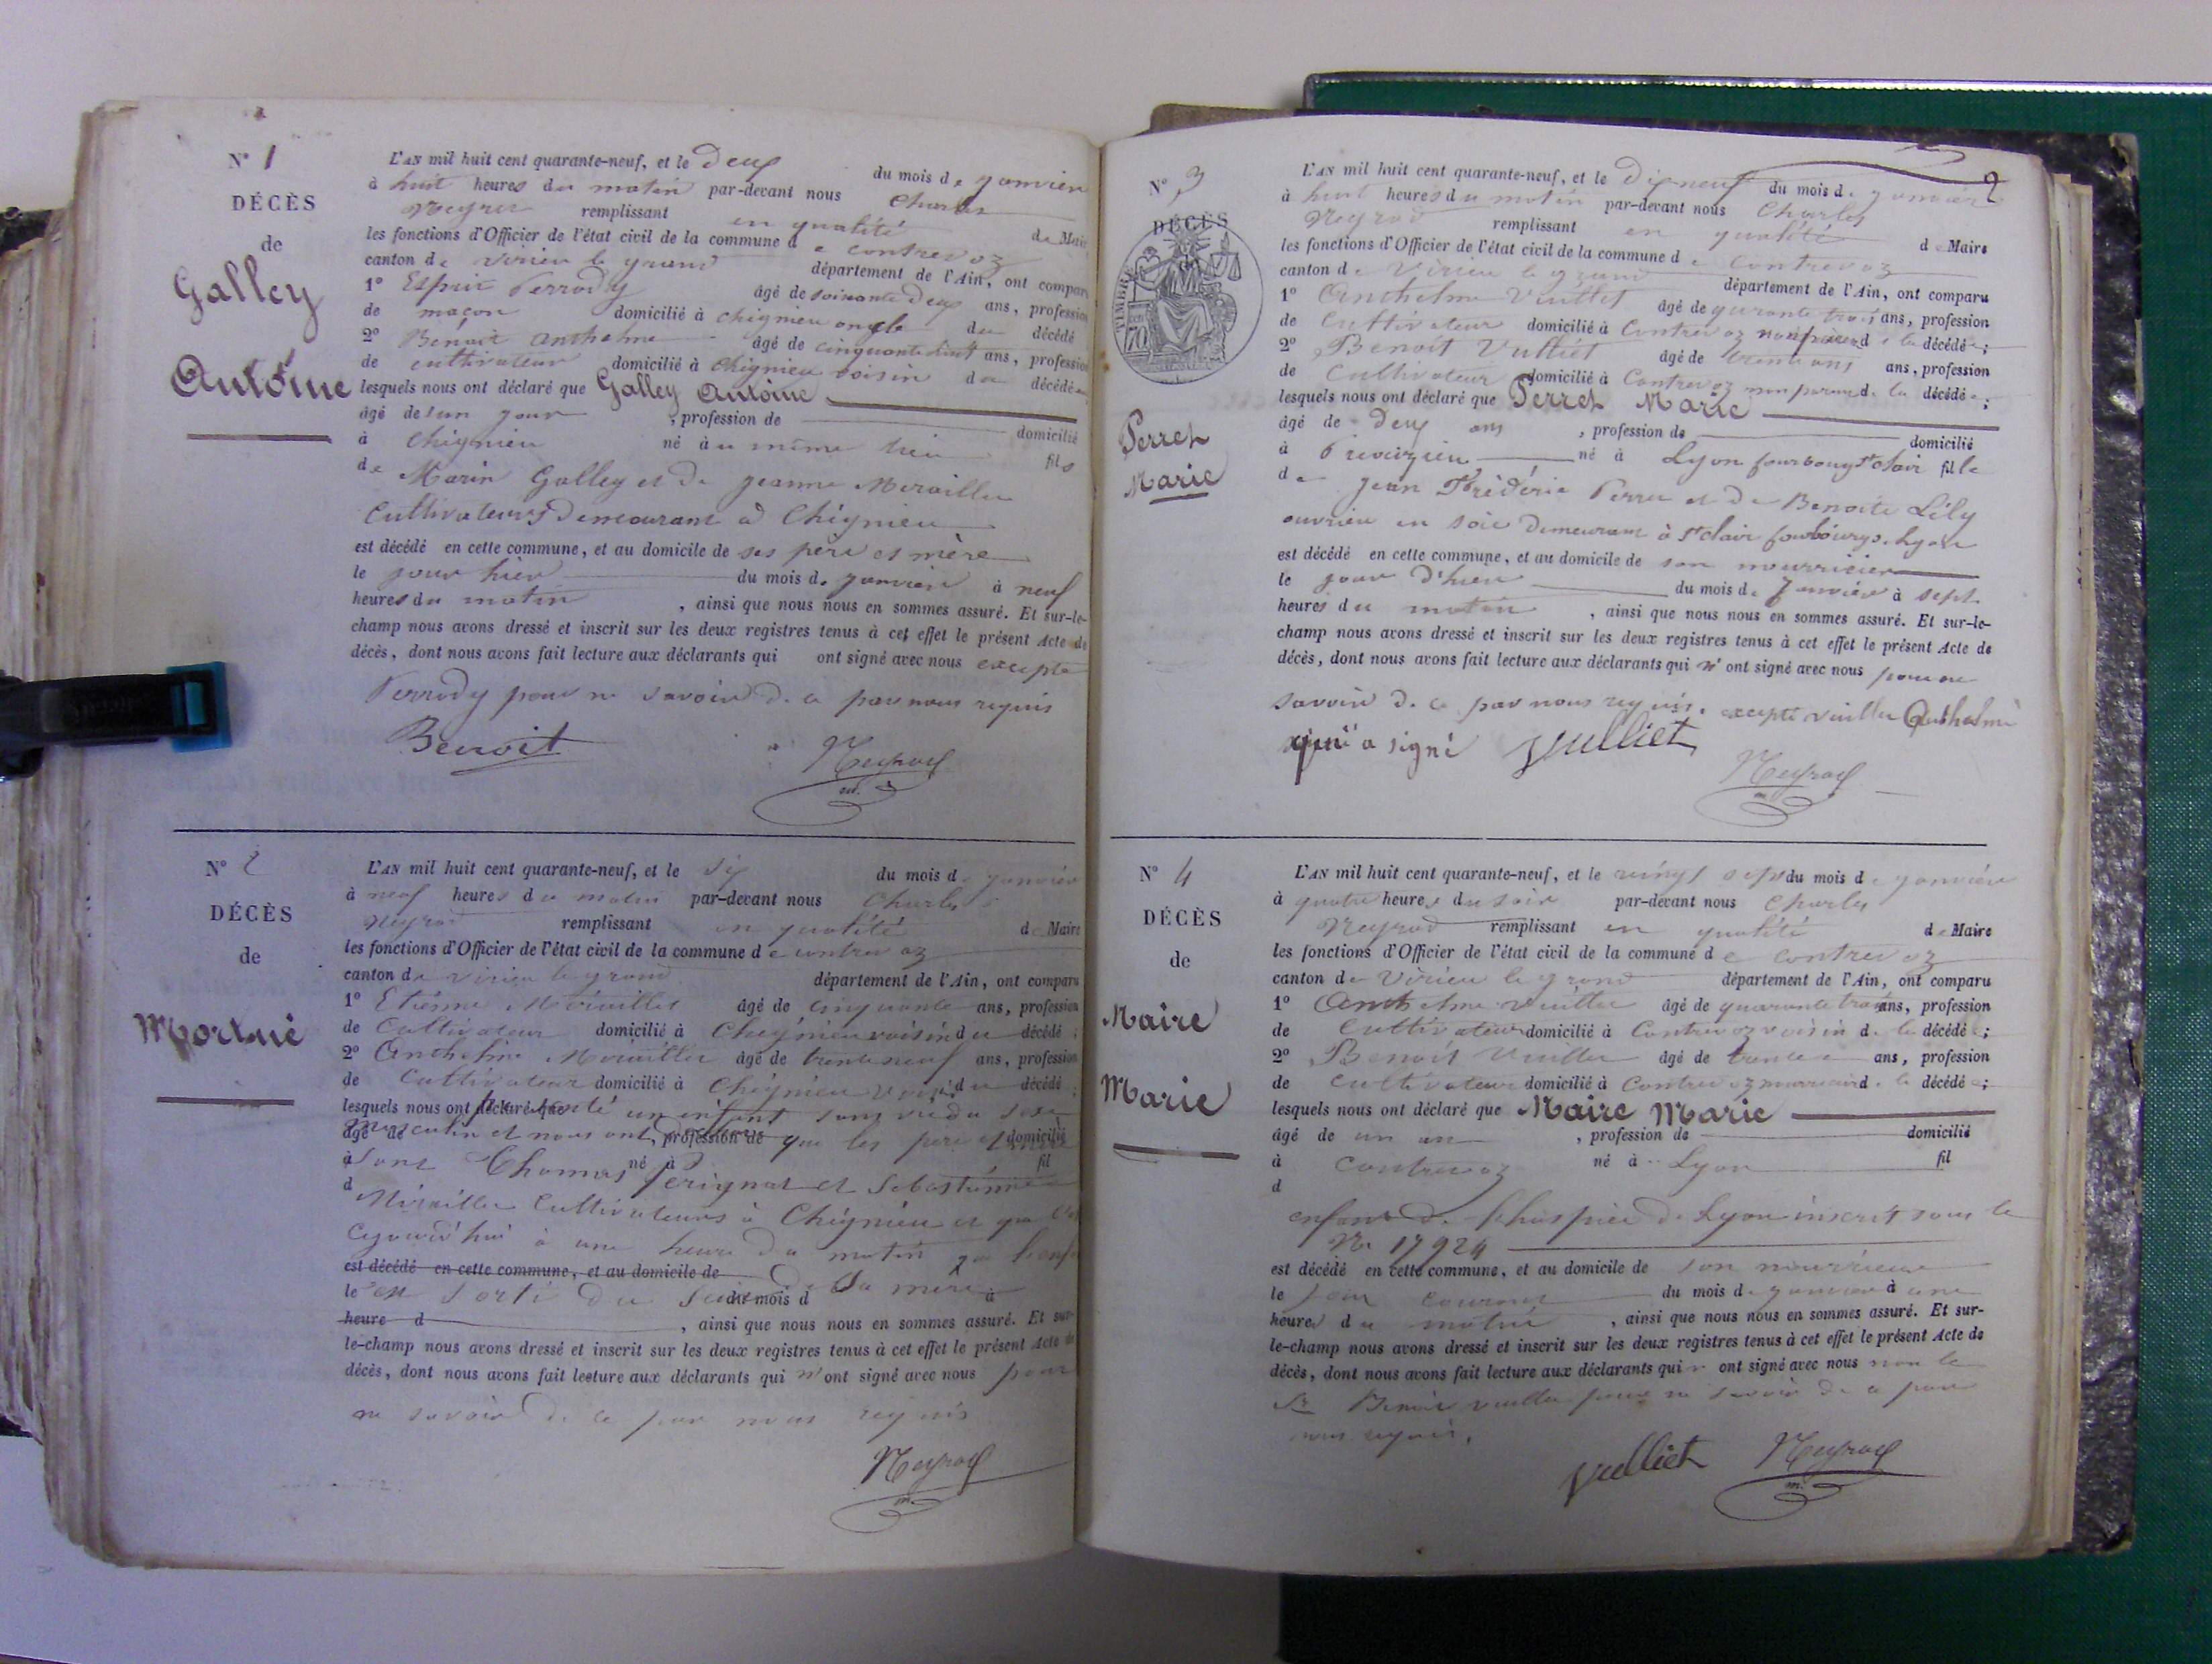 N° 1
DÉCÈS
de
Galley
Antoine
L'AN mil huit cent quarante-neuf, et le deux du mois de janvier
à huit heures du matin par-devant nous Charles
Neyrod remplissant en qualité de Maire
les fonctions d'Officier de l'état civil de la commune de Contrevoz
canton de Virieu le grand département de l'Ain, ont comparu
1° Esprit Perrody âgé de soixante deux ans, profession
de maçon domicilié à Chignieu oncle du décédé
2° Benoit Anthelme âgé de cinquante huit ans, profession
de cultivateur domicilié à Chignieu voisin du décédé
lesquels nous ont déclaré que Galley Antoine
âgé de un jour, profession de domicilié
à Chignieu né à u même lieu fils
de Marin Galley et de Jeanne Miraillet
Cultivateurs demeurant à Chignieu
est décédé en cette commune, et au domicile de ses père et mère
le jour hier du mois de janvier à neuf
heures du matin, ainsi que nous nous en sommes assuré. Et sur-le-
champ nous avons dressé et inscrit sur les deux registres tenus à cet effet le présent Acte de
décès, dont nous avons fait lecture aux déclarants qui ont signé avec nous excepté
Perrody pour ne savoir de ce par nous requis
Benoit Neyrod
m.
N° 2
DÉCÈS
de
Mort né
L'AN mil huit cent quarante-neuf, et le six du mois de janvier
à neuf heures du matin par-devant nous Charles
Neyrod remplissant en qualité de Maire
les fonctions d'Officier de l'état civil de la commune de Contrevoz
canton de Virieu le grand département de l'Ain, ont comparu
1° Etienne Miraillet âgé de cinquante ans, profession
de Cultivateur domicilié à Chignieu voisin du décédé;
2° Anthelme Miraillet âgé de trente neuf ans, profession
de Cultivateur domicilié à Chignieu voisin du décédé;
lesquels nous ont déclaré que présenté un enfant sans vie du sexe
âgé de masculin et nous ont profession de que les père et domicilié
à sont Thomas né à Perignat et Sebastienne fil
d Miraillet Cultivateurs à Chignieu et que
Cejourd'hui à une heure du matin que l'enfant
est décédé en cette commune, et au domicile de
le est sorti du sein du mois d de sa mère à
heure d, ainsi que nous nous en sommes assuré. Et sur-
le-champ nous avons dressé et inscrit sur les deux registres tenus à cet effet le présent Acte de
décès, dont nous avons fait lecture aux déclarants qui n'ont signé avec nous pour
ne savoir de ce par nous requis
Neyrod
m.
2
N° 3
DÉCÈS
TIMBRE
70
Perret
Marie
L'AN mil huit cent quarante-neuf, et le Dix neuf du mois de janvier
à huit heures du matin par-devant nous Charles
Neyrod remplissant en qualité de Maire
les fonctions d'Officier de l'état civil de la commune de Contrevoz
canton de Virieu le grand département de l'Ain, ont comparu
1° Anthelme Vulliet âgé de quarante trois ans, profession
de Cultivateur domicilié à Contrevoz non parent de la décédée;
2° Benoit Vulliet âgé de trente ans ans, profession
de Cultivateur domicilié à Contrevoz non parent de la décédée;
lesquels nous ont déclaré que Perret Marie
âgé de deux ans, profession de domicilié
à né à Lyon fourboug St Clair fille
de Jean Frédéric Perret et de Benoite Lély
ouvrier en soie demeurant à St Clair fourbourg de Lyon
est décédé en cette commune, et au domicile de son nourricier
le jour d'hier du mois de janvier à sept
heures du matin, ainsi que nous nous en sommes assuré. Et sur-le-
champ nous avons dressé et inscrit sur les deux registres tenus à cet effet le présent Acte de
décès, dont nous avons fait lecture aux déclarants qui n'ont signé avec nous pour ne
savoir de ce par nous requis. excepté Vuillet Anthelme
qui a signé Vulliet
Neyrod
m.
N° 4
DÉCÈS
de
Maire
Marie
L'AN mil huit cent quarante-neuf, et le vingt sept du mois de janvier
à quatre heures du soir par-devant nous Charles
Neyrod remplissant en qualité de Maire
les fonctions d'Officier de l'état civil de la commune de Contrevoz
canton de Virieu le grand département de l'Ain, ont comparu
1° Anthelme Vuillet âgé de quarante trois ans, profession
de Cultivateur domicilié à Contrevoz voisin de la décédée;
2° Benoit Vuillet âgé de trente ans, profession
de Cultivateur domicilié à Contrevoz nourricier de la décédée;
lesquels nous ont déclaré que Maire Marie
âgé de un an, profession de domicilié
à Contrevoz né à Lyon fil
d
enfant de l'hospice de Lyon inscrit sous le
N° 17924
est décédé en cette commune, et au domicile de son nourricier
le jour courant du mois de janvier à une
heures du matin, ainsi que nous nous en sommes assuré. Et sur-
le-champ nous avons dressé et inscrit sur les deux registres tenus à cet effet le présent Acte de
décès, dont nous avons fait lecture aux déclarants qui ont signé avec nous non le
Sr Benoit Vuillet pour ne savoir de ce par
nous requis.
Vulliet Neyrod
m.